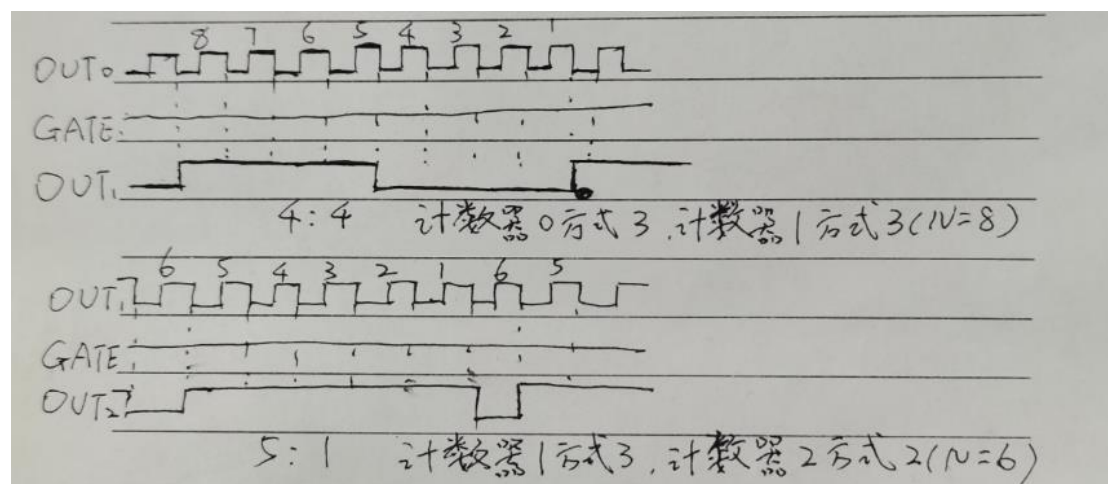 8 7 6 5 4 3 2 1
OUT₀
GATE
OUT₁
4:4 计数器0方式3,计数器1方式3(N=8)
6 5 4 3 2 1 6 5
OUT₁
GATE
OUT₂
5:1 计数器1方式3,计数器2方式2(N=6)